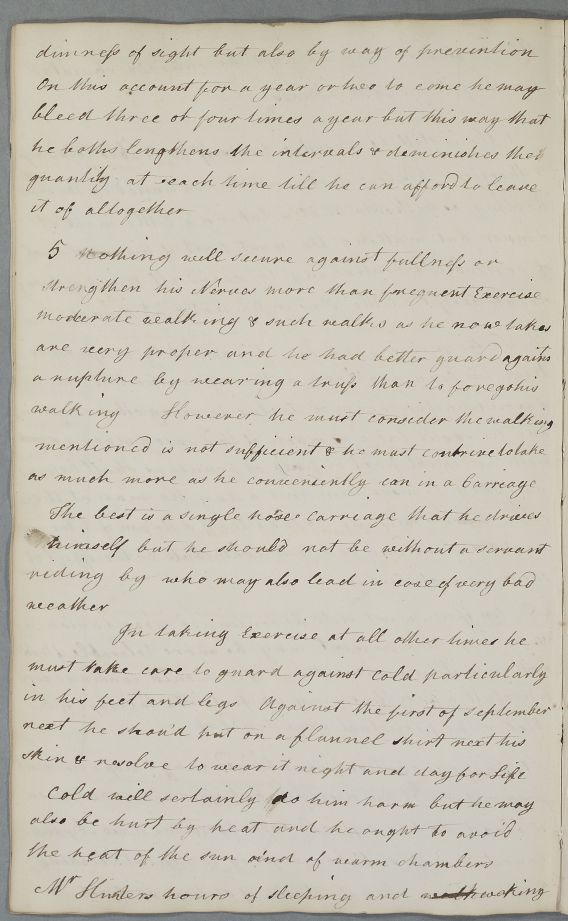 dimness of sight but also by way of prevention
On this account for a year or two to come he may
bleed three or four times a year but this way that
he boths lengthens the intervals & diminishes the
quantity at each time till he can afford to leave
it of altogether
5 Nothing will secure against fullness or
strengthen his Nerves more than frequent Exercise
moderate walking & such walks as he now takes
are very proper and he had better guard against
a rupture by wearing a truss than to forego his
walking However he must consider the walking
mentioned is not sufficient & he must contrive to take
as much more as he conveniently can in a Carreage
The best is a single hose Carriage that he drives
himself but he should not be without a servant
riding by who may also lead in case of very bad
weather
In taking Exercise at all other times he
must take care to guard against Cold particularly
in his feet and legs Against the first of september
next he shou'd put on a flannel shirt next his
skin & resolve to wear it night and day for Life
Cold will sertainly do him harm but he may
also be hurt by heat and he ought to avoid
the heat of the sun and of warm chambers
Mr Hunters hours of sleeping and walk waking